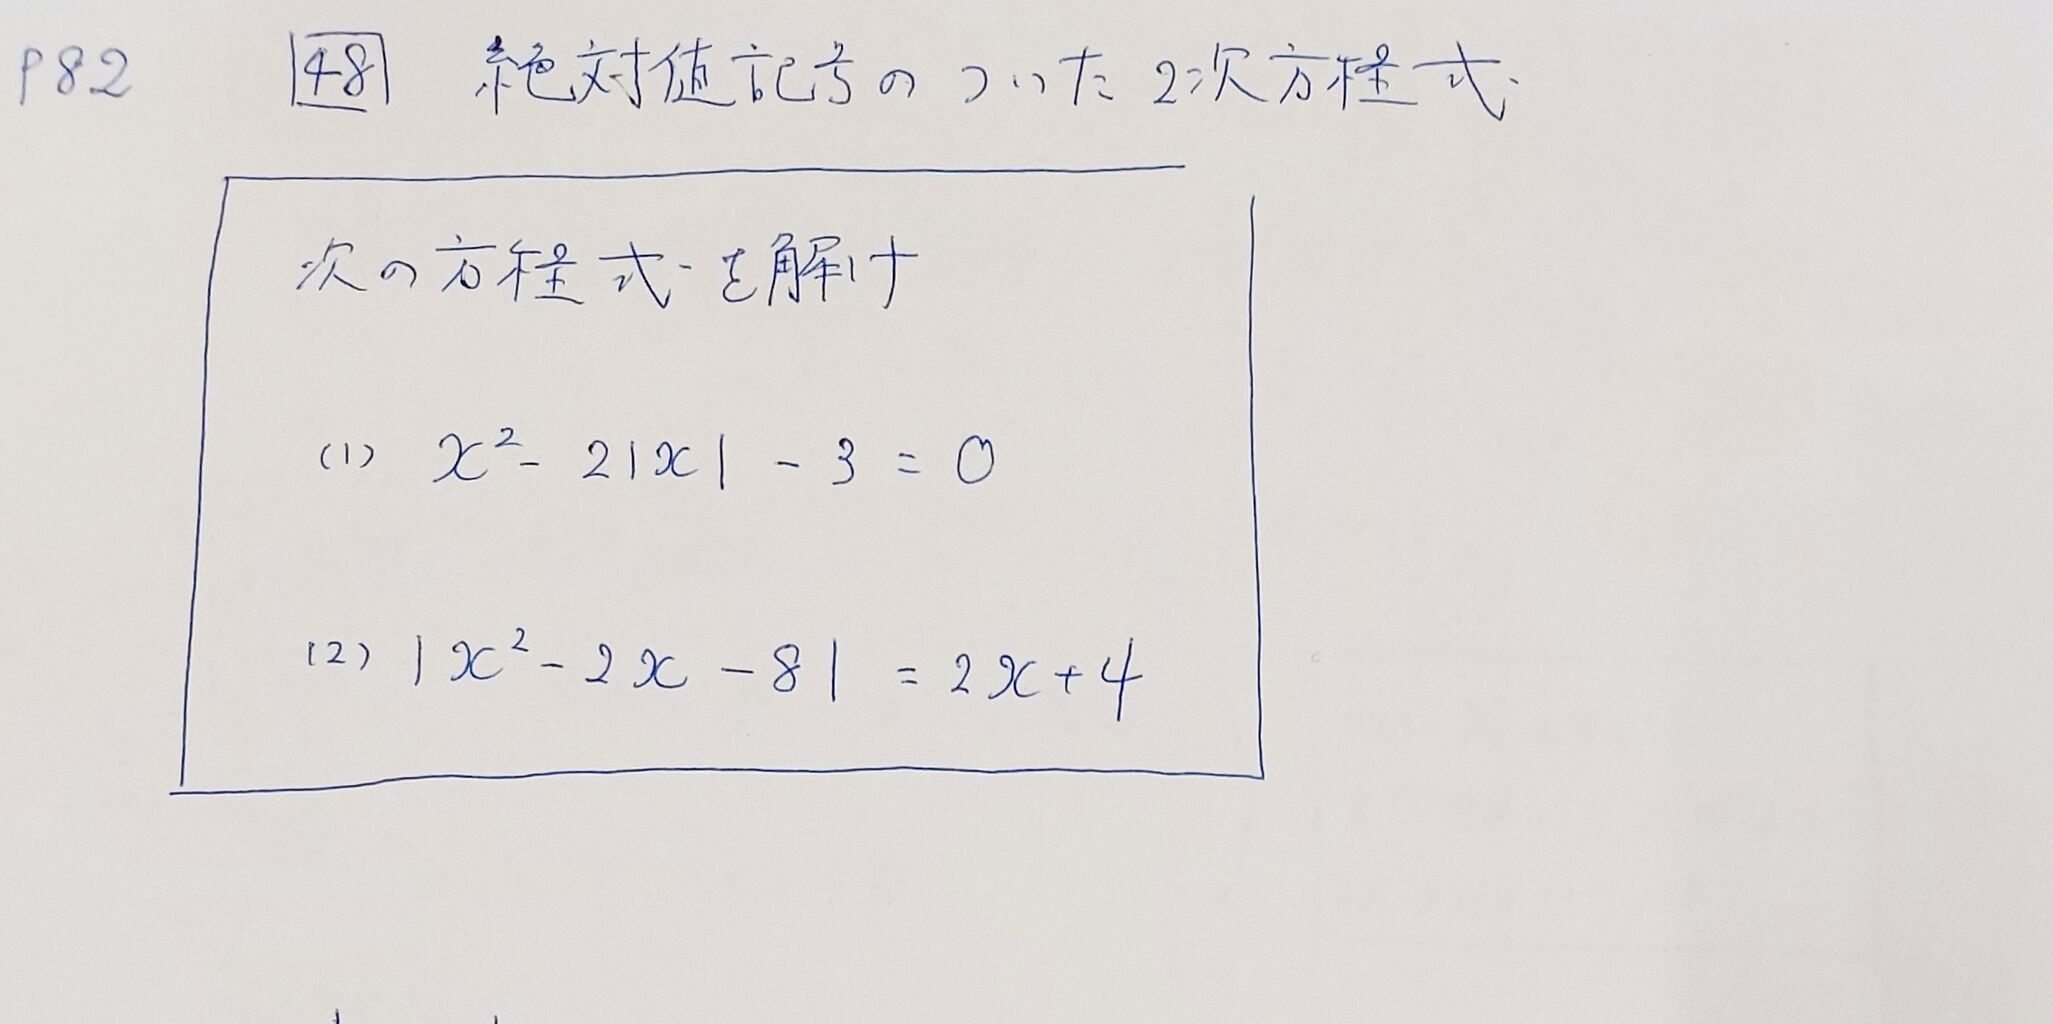 P82 48 絶対値記号のついた2次方程式.
次の方程式を解け
(1) x² - 2|x| - 3 = 0
(2) |x² - 2x - 8| = 2x + 4